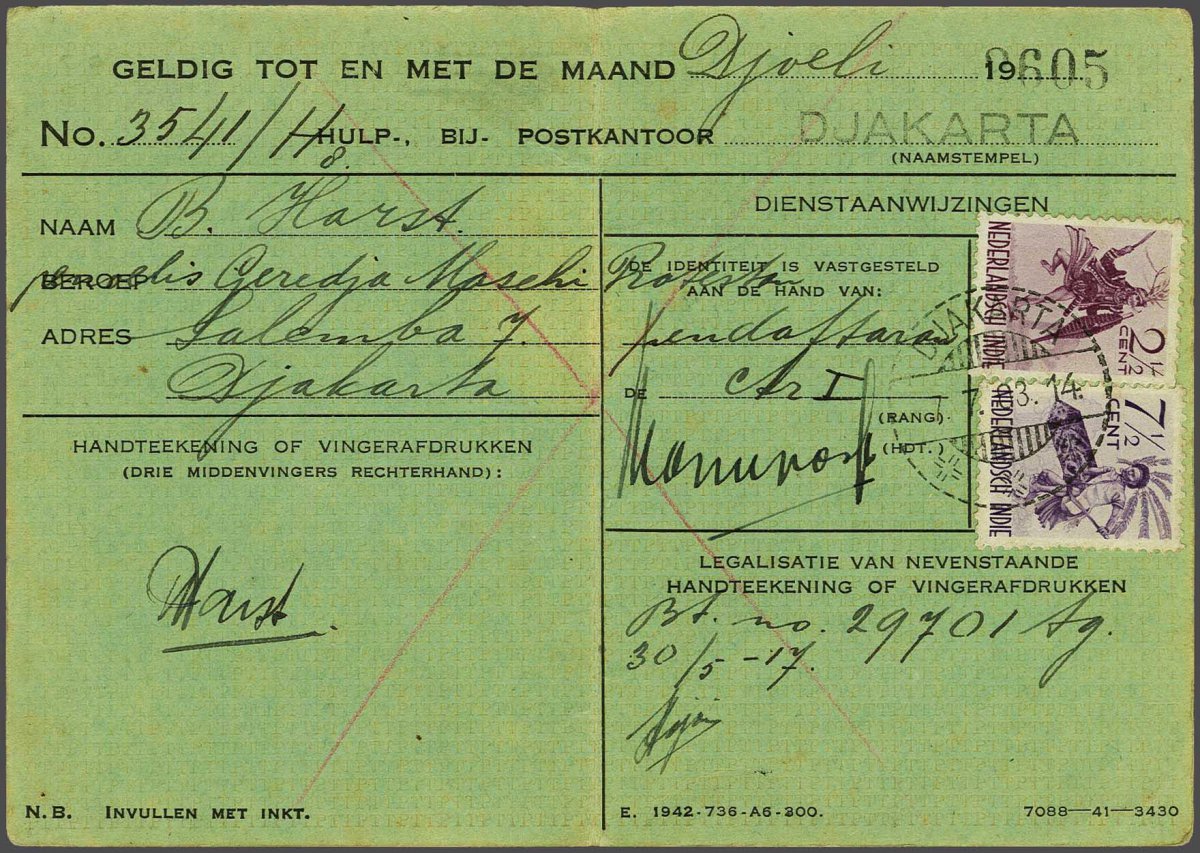 GELDIG TOT EN MET DE MAAND Djoeli 19 8605
No. 3541/H 8. HULP-, BIJ- POSTKANTOOR DJAKARTA
(NAAMSTEMPEL)
NAAM B. Harst.
BEROEP Geredja Masehi
ADRES Salemba 7.
Djakarta
HANDTEEKENING OF VINGERAFDRUKKEN
(DRIE MIDDENVINGERS RECHTERHAND):
Harst
N.B. INVULLEN MET INKT.
DIENSTAANWIJZINGEN
DE IDENTITEIT IS VASTGESTELD
AAN DE HAND VAN:
pendaftaran
DE Ar I
(RANG)
(HDT.)
NEDERLANDSCH INDIE
2½ CENT
NEDERLANDSCH INDIE
7½ CENT
DJAKARTA
7. 7. 03. 14.
LEGALISATIE VAN NEVENSTAANDE
HANDTEEKENING OF VINGERAFDRUKKEN
Bt. no. 29701 tg.
30/5-17.
E. 1942-736-A6-300.
7088—41—3430